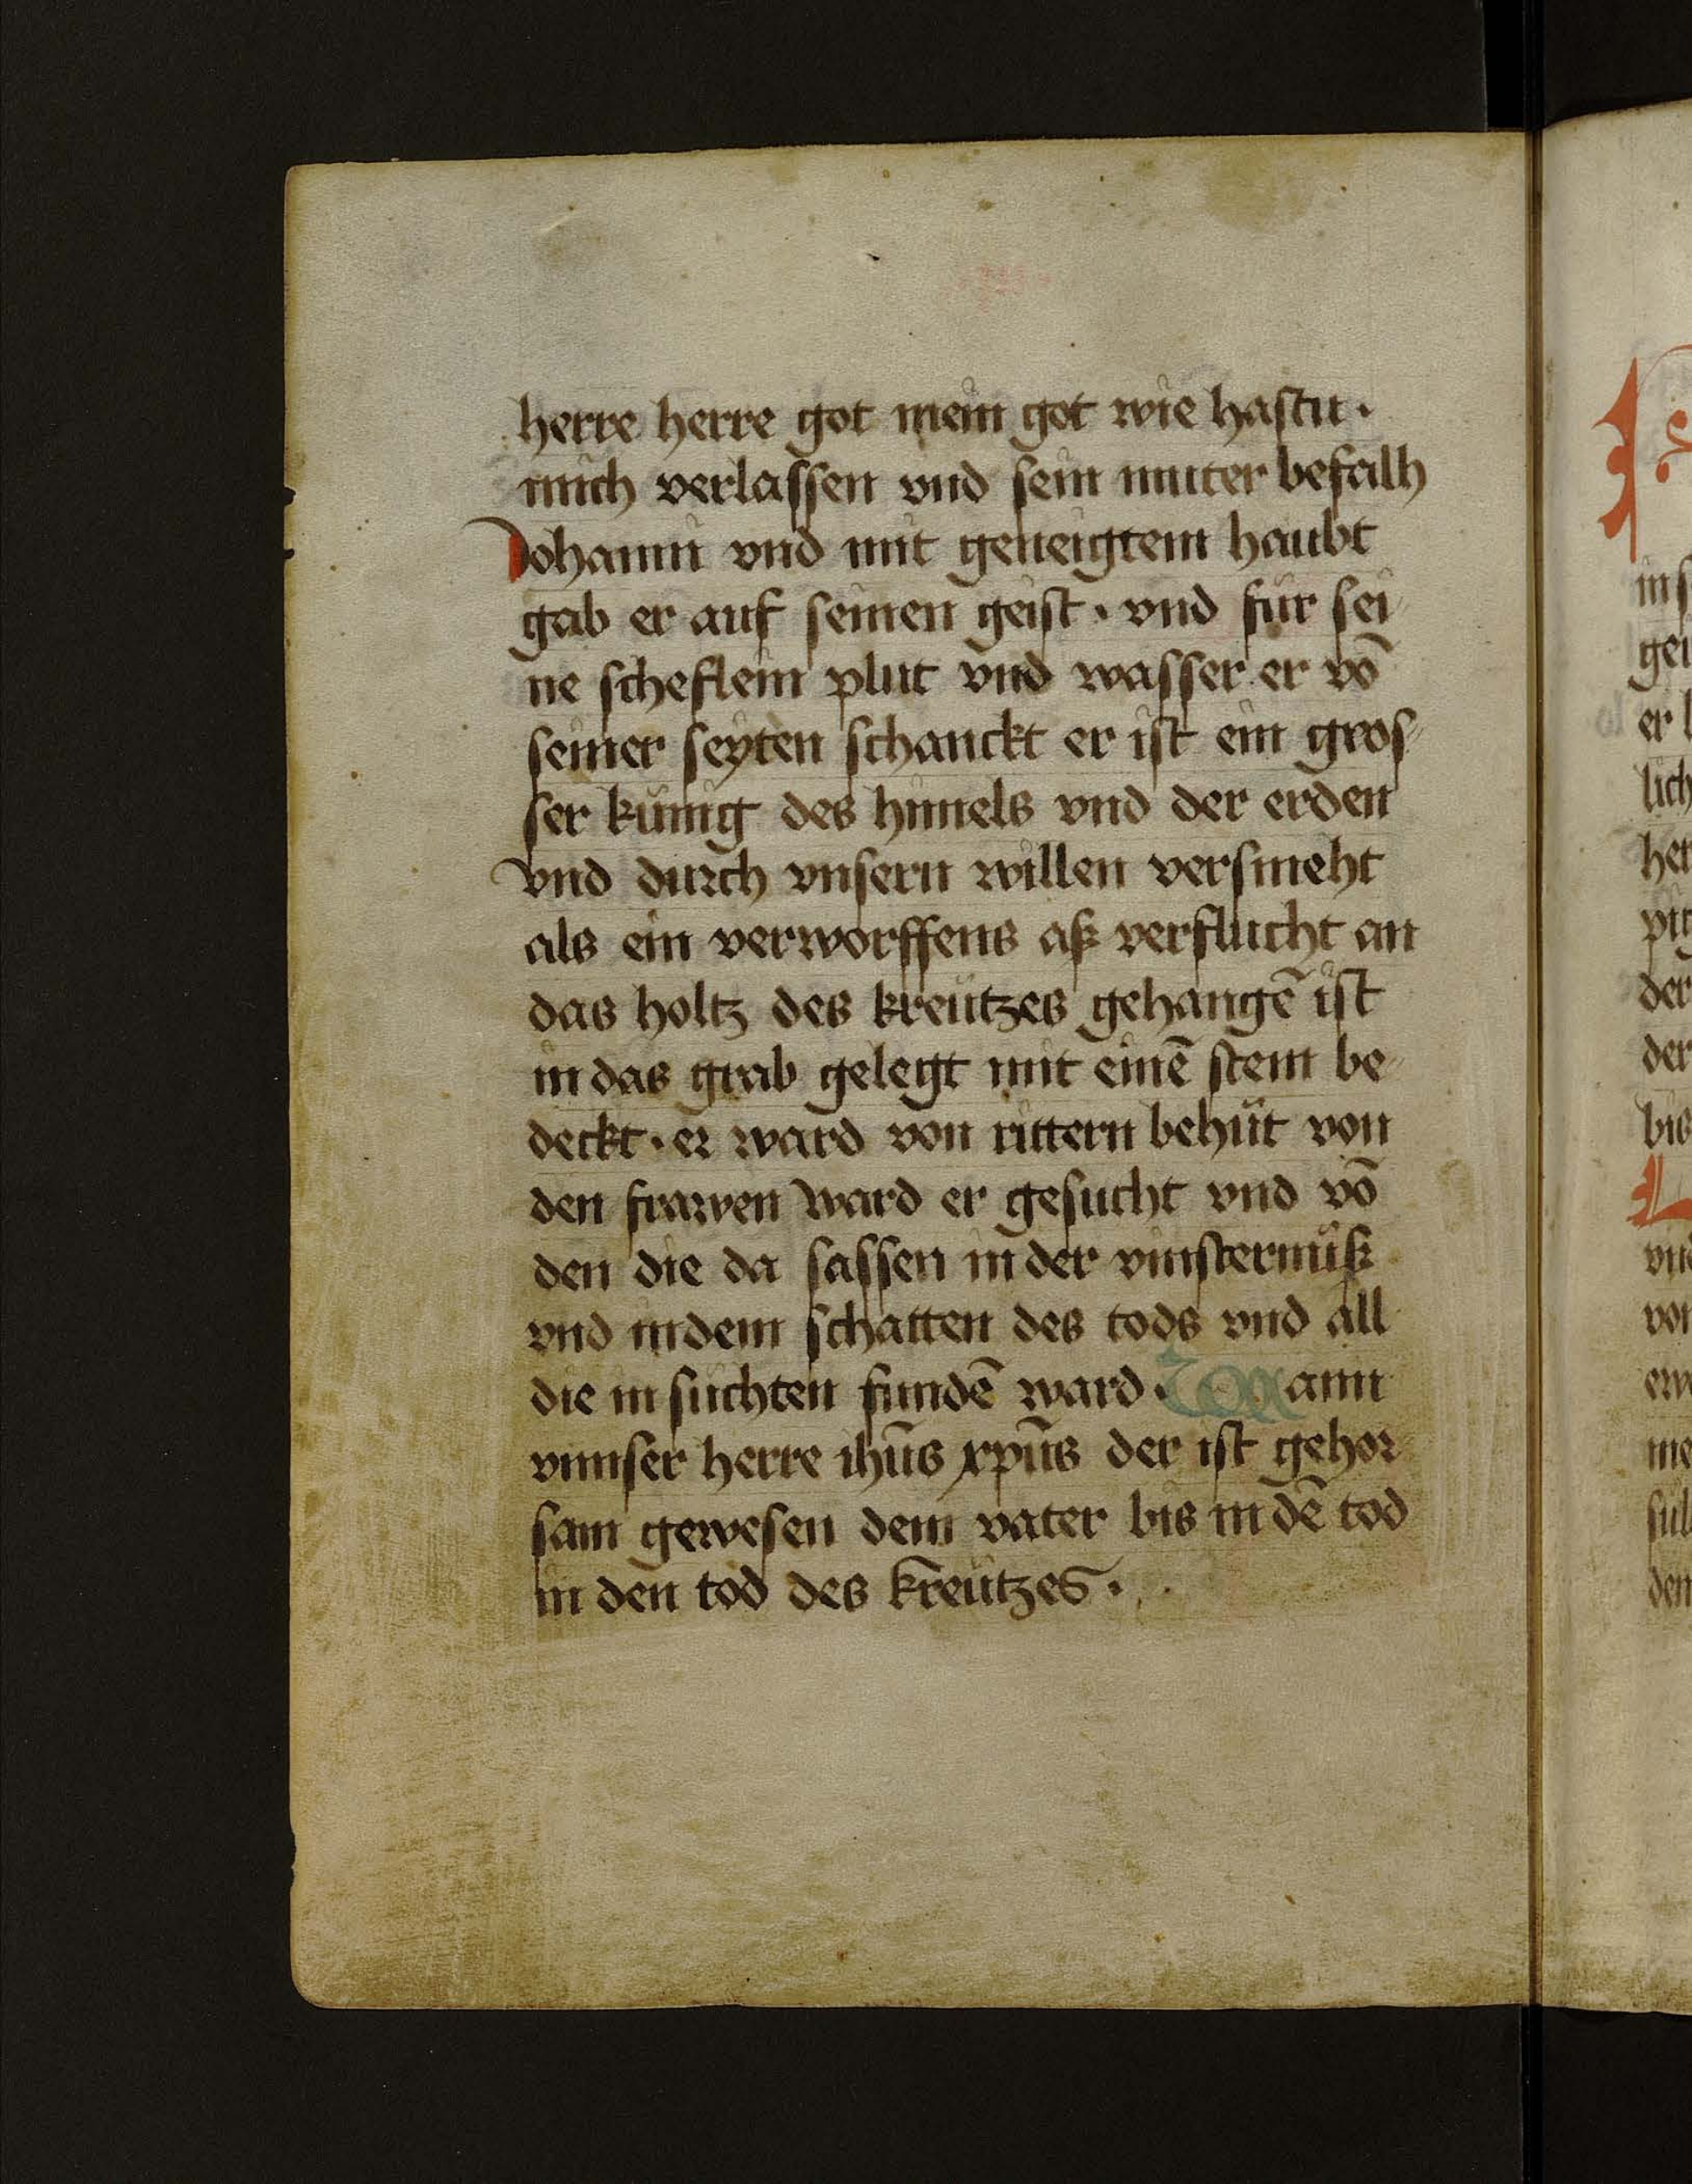 herre herre got mein got wie hastu·
mich verlassen vnd sein muter befalh
Johanni vnd mit geneigtem haubt
gab er auf seinen geist· vnd für sei
ne scheflein plut vnd wasser er vō
seiner seyten schanckt er ist ein gros
ser künig des himels vnd der erden
vnd durch vnsern willen versmeht
als ein verworffens aß verflucht an
das holtz des kreützes gehangē ist
in das grab gelegt mit einē stein be
deckt· er ward von rittern behüt von
den frawen ward er gesucht vnd vō
den die da sassen in der vinsternüß
vnd in dem schatten des tods vnd all
die in suchten fundē ward· Wann
vnnser herre ihūs xpūs der ist gehor
sam gewesen dem vater bis in dē tod
in den tod des kreützes·